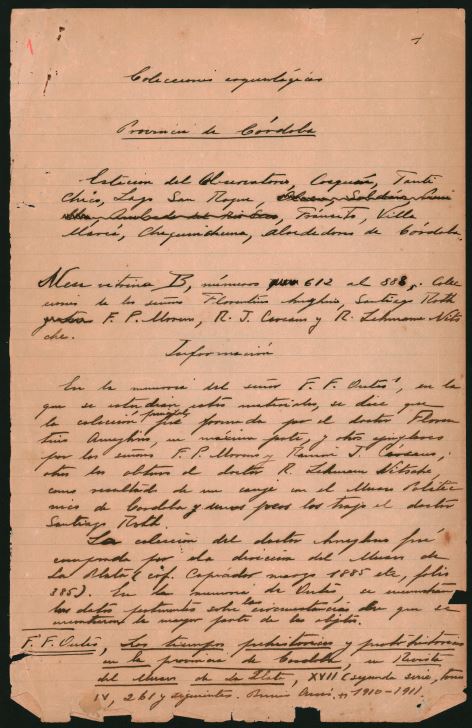 1
1
Colecciones arqueológicas
Provincia de Córdoba
Estacion del Observatorio, Cosquín, Tanti
Chico, Lago San Roque,
Tránsito, Villa
María, Chequinchuna, alrededores de Córdoba.
Mesa vitrina B, números 612 al 888. Colec
ciones de los señores Florentino Ameghino, Santiago Roth
F. P. Moreno, R. J. Carcano y R. Lehmann Nits
che.
Información
En la memoria del señor F. F. Outes¹, en la
que se estudian estos materiales, se dice que
la colección principal fué formada por el doctor Floren
tino Ameghino, en máxima parte, y otros ejemplares
por los señores F. P. Moreno y Ramon J. Carcano;
otros los obtuvo el doctor R. Lehmann Nitsche,
como resultado de un canje con el Museo Politéc
nico de Cordoba y unos pocos los trajo el doctor
Santiago Roth.
La colección del doctor Ameghino fué
comprada por la dirección del Museo de
La Plata (cof. Copiador marzo 1885 etc, folio
385). En la memoria de Outes, se encuentran
los datos pertinentes sobre las circunstancias de que se
encontraron la mayor parte de los objetos.
F. F. Outes, Los tiempos prehistóricos y protohistóricos
en la provincia de Cordoba, en Revista
del Museo de La Plata, XVII (segunda serie, tomo
IV, 261 y siguientes. Buenos Aires, 1910-1911.